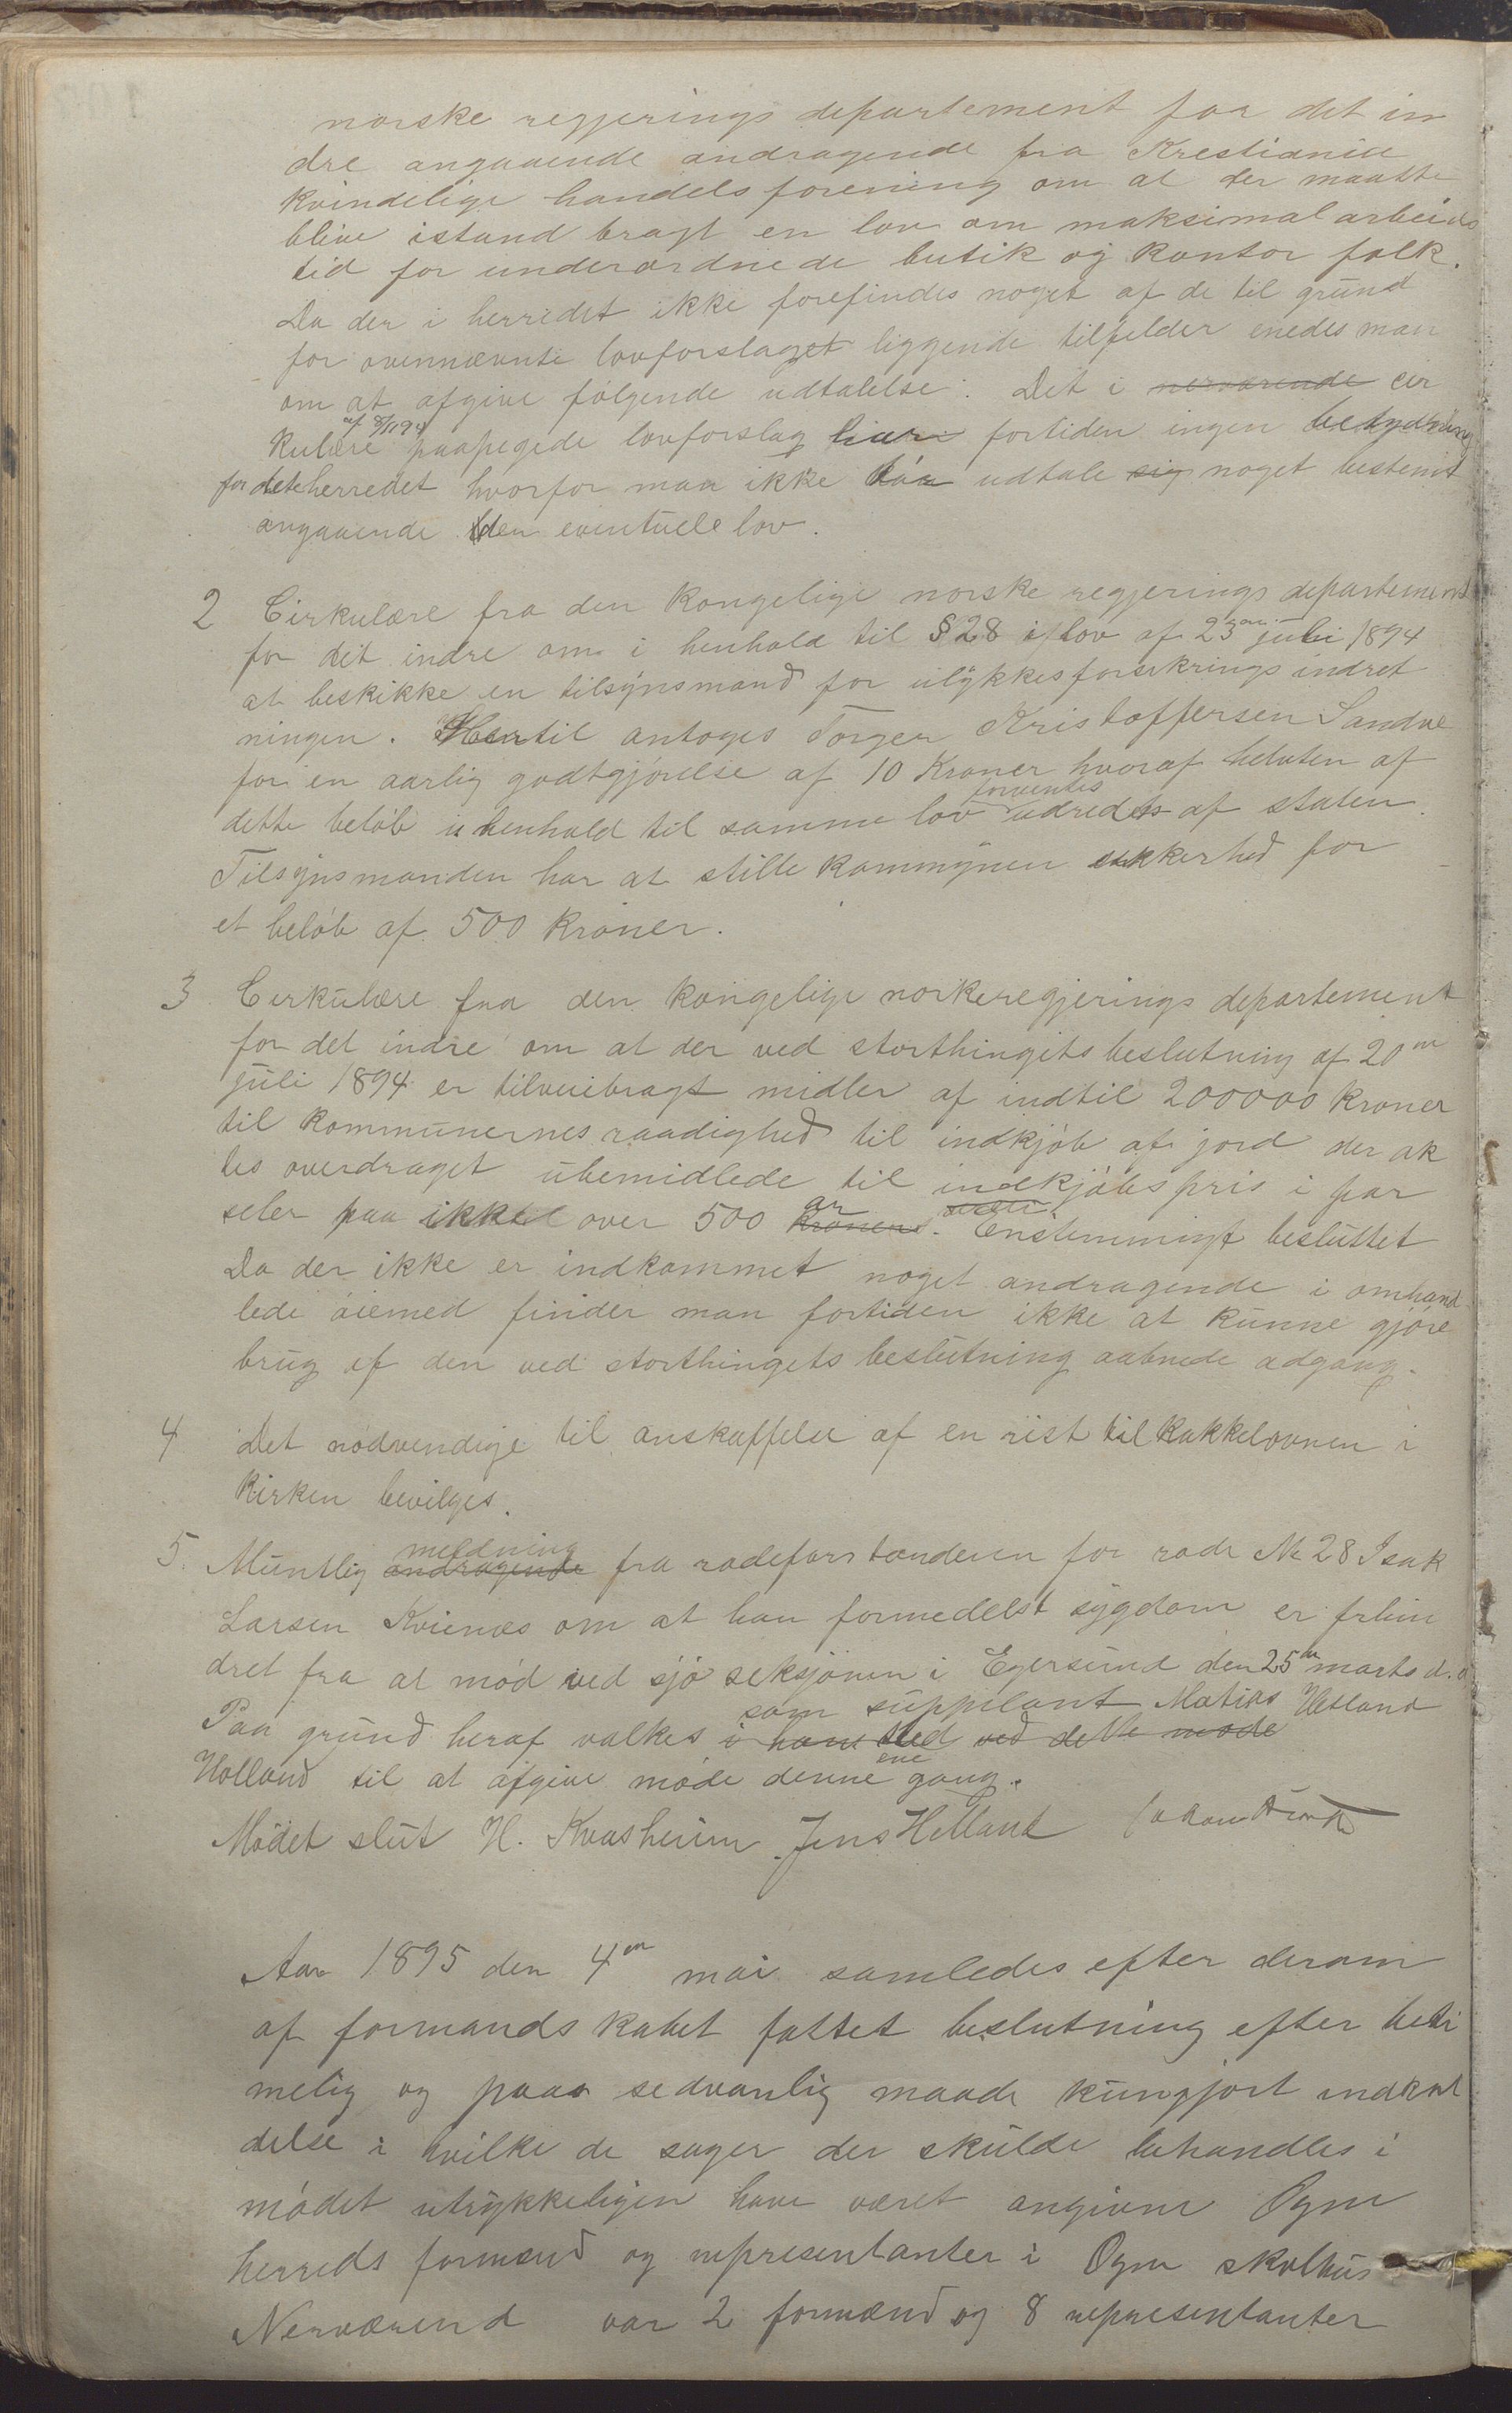 norske regjerings departement for det in
dre angaaende andragende fra Krestiania
kvindelige handelsforening om at der maatte
blive istand bragt en lov om maksimal arbeids
tid for underordnede butik og kontor folk.
Da der i herredet ikke forefindes noget af de til grund
for ovennævnte lovforslaget liggende tilfelder enedes man
om at afgive følgende udtalelse: Det i nerværende cir
kulære af 8/11 94 paapegede lovforslag har fortiden ingen betydning
for dete herredet hvorfor man ikke udtale sig noget bestemt
angaaende den eventuelle lov.
2 Cirkulære fra den kongelige norske regjerings departement
for det indre om i henhold til § 28 i lov af 23 juli 1894
at beskikke en tilsynsmand for ulykkesforsikrings indret
ningen. Hertil antoges Torger Kristoffersen Sandve
for en aarlig godtgjørelse af 10 Kroner hvoraf halvten af
dette beløb i henhold til samme lov forventes udredes af staten.
Tilsynsmanden har at stille kommunen sikkerhed for
et beløb af 500 kroner.
3 Cirkulære fra den kongelige norkeregjerings departement
for det indre om at der ved storthingets beslutning af 20de
juli 1894 er tilveiebragt midler af indtil 200000 kroner
til kommunernes raadighed til indkjøb af jord der ak
tes overdraget ubemidlede til indkjøbspris i par
seler paa ikke over 500 kroner ar. Enstemmigt besluttet
Da der ikke er indkommet noget andragende i omhand
lede øiemed finder man fortiden ikke at kunne gjøre
brug af den ved storthingets beslutning aabnede adgang.
4 Det nødvendige til anskaffelse af en rist til kakkelovnen i
kirken bevilges.
5. Muntlig andragende meldning fra rodeforstanderen for rode No 28 Isak
Larsen Kvienes om at han formedelst sygdom er frhin
dret fra at mød ved sjø seksjonen i Egersund den 25de marts d. a
Paa grund heraf valkes i hans sted ved dette møde som suppilant Matias Hetland
Holland til at afgive møde denne ene gang.
Mødet slut H. Kvasheim Jens Helland
Aar 1895 den 4de mai samledes efter derom
af formandskabet fattet beslutning efter beti
melig og paa sedvanlig maade kungjort indkal
delse i hvilke de sager der skulde behandles i
mødet utrykkeligen have været angivne Ogne
herreds formænd og representanter i Ogne skolhus
Nerværend var 2 formænd og 8 representanter